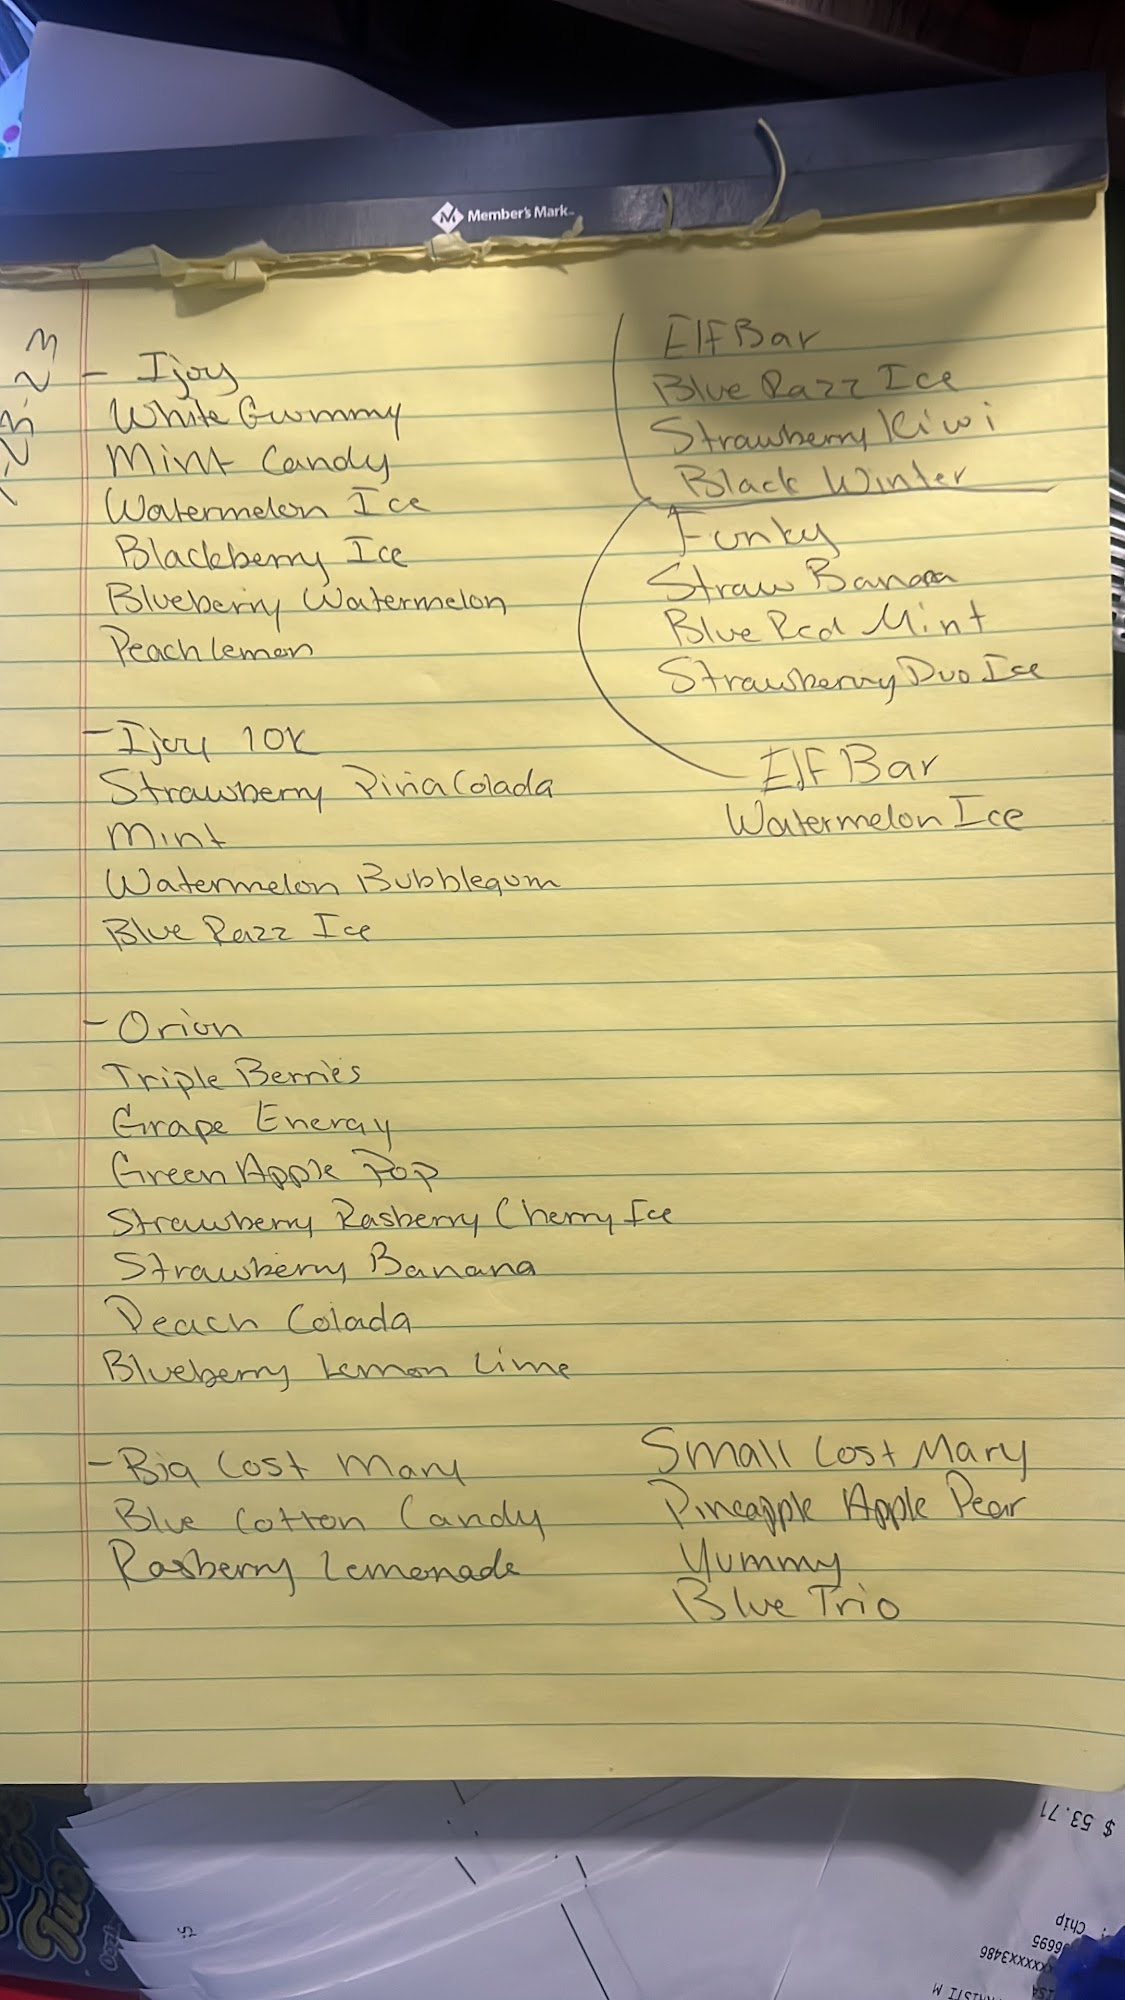 Member's Mark
- Ijoy
White Gummy
Mint Candy
Watermelon Ice
Blackberry Ice
Blueberry Watermelon
Peach lemon
- Ijoy 10K
Strawberry Piña Colada
Mint
Watermelon Bubblegum
Blue Razz Ice
- Orion
Triple Berries
Grape Energy
Green Apple Pop
Strawberry Rasberry Cherry Ice
Strawberry Banana
Peach Colada
Blueberry Lemon Lime
- Big Lost Mary
Blue Cotton Candy
Rasberry Lemonade
Elf Bar
Blue Razz Ice
Strawberry Kiwi
Black Winter
Funky
Straw Banana
Blue Red Mint
Strawberry Duo Ice
Elf Bar
Watermelon Ice
Small Lost Mary
Pineapple Apple Pear
Yummy
Blue Trio
$ 53.71
Chip
6695
xxxxxx3486